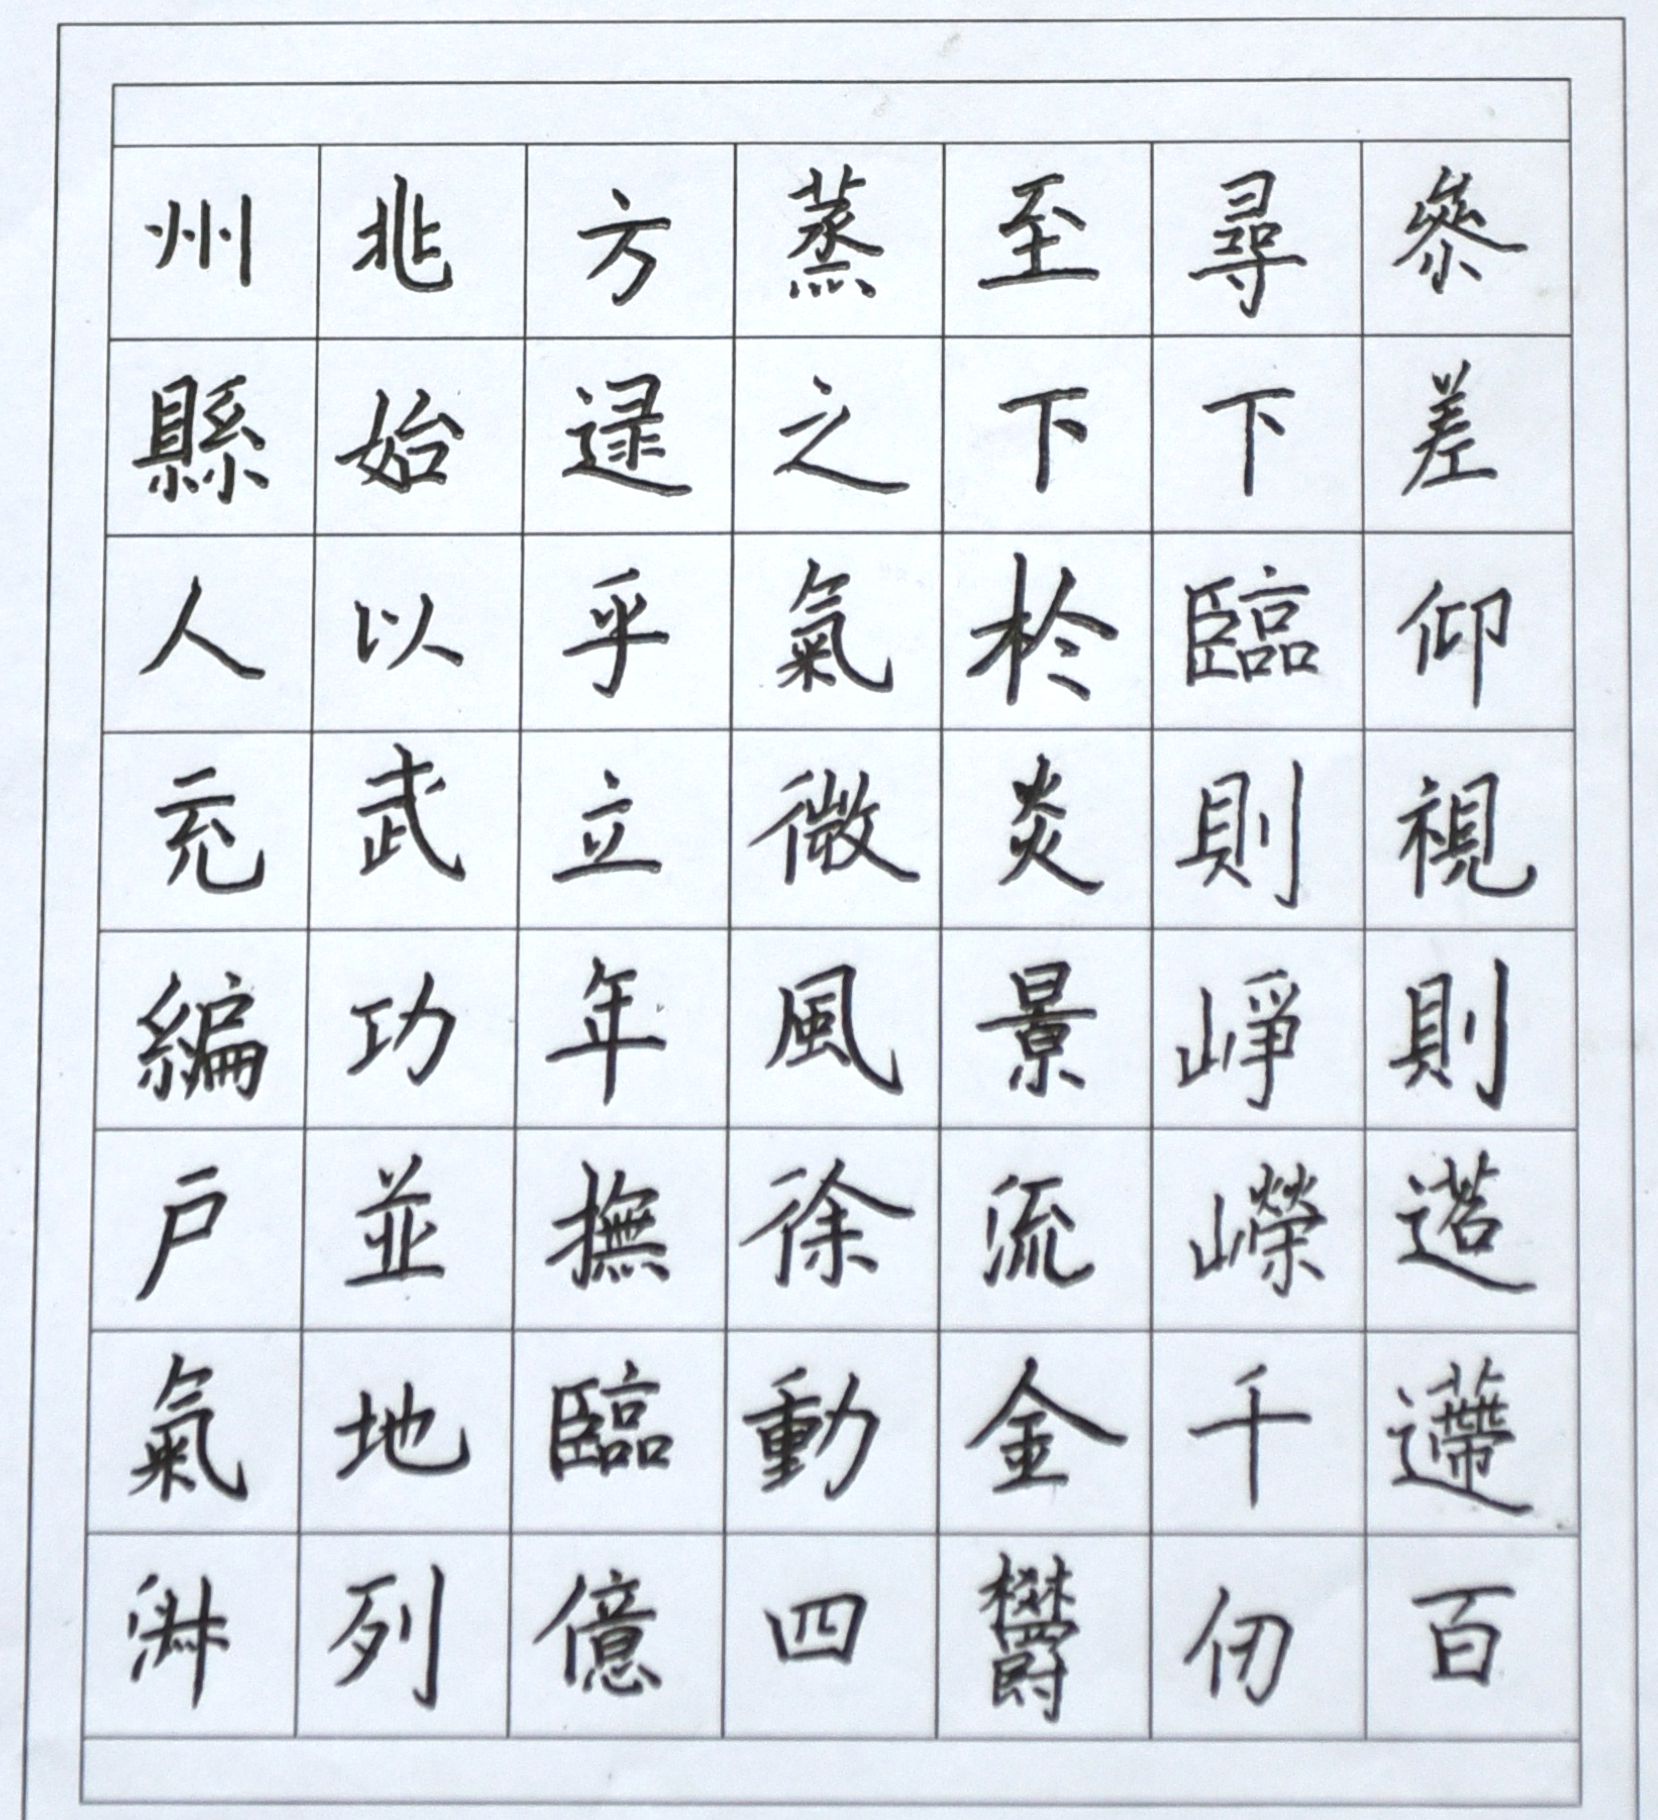 參差仰視則迢遰百
尋下臨則崢嶸千仞
至下於炎景流金鬱
蒸之氣微風徐動四
方逮乎立年撫臨億
兆始以武功並地列
州縣人充編戶氣淑